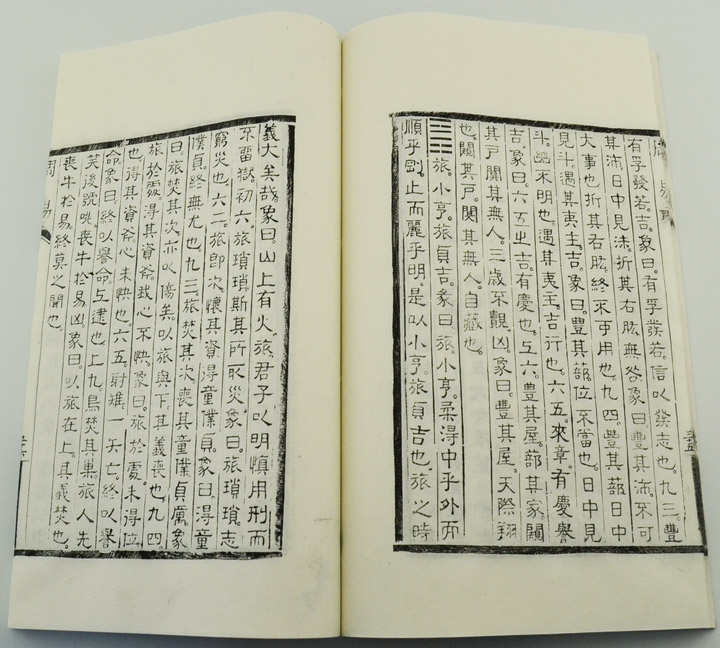 周易
有孚發若吉。象曰。有孚發若。信以發志也。九三。豐
其沛日中見沬。折其右肱無咎。象曰豐其沛。不可
大事也。折其右肱。終不可用也。九四。豐其蔀日中
見斗。遇其夷主吉。象曰。豐其蔀。位不當也。日中見
斗。幽不明也。遇其夷主吉行也。六五。來章有慶譽
吉。象曰。六五之吉。有慶也。上六。豐其屋。蔀其家。闚
其戶闃其無人。三歲不覿。凶。象曰。豐其屋。天際翔
也。闚其戶。闃其無人。自藏也。
䷷旅。小亨。旅貞吉。彖曰旅。小亨。柔得中乎外而
順乎剛。止而麗乎明。是以小亨。旅貞吉也。旅之時
義大矣哉。象曰。山上有火。旅。君子以明慎用刑而
不留獄。初六。旅瑣瑣斯其所取災。象曰。旅瑣瑣。志
窮災也。六二。旅即次。懷其資得童僕貞。象曰。得童
僕貞。終無尤也。九三。旅焚其次。喪其童僕貞厲。象
曰。旅焚其次。亦以傷矣。以旅與下。其義喪也。九四。
旅於處。得其資斧。我心不快。象曰。旅於處。未得位
也。得其資斧。心未快也。六五。射雉一矢亡。終以譽
命。象曰。終以譽命。上逮也。上九。鳥焚其巢。旅人先
笑後號咷。喪牛於易。凶。象曰。以旅在上。其義焚也。
喪牛於易。終莫之聞也。
周易